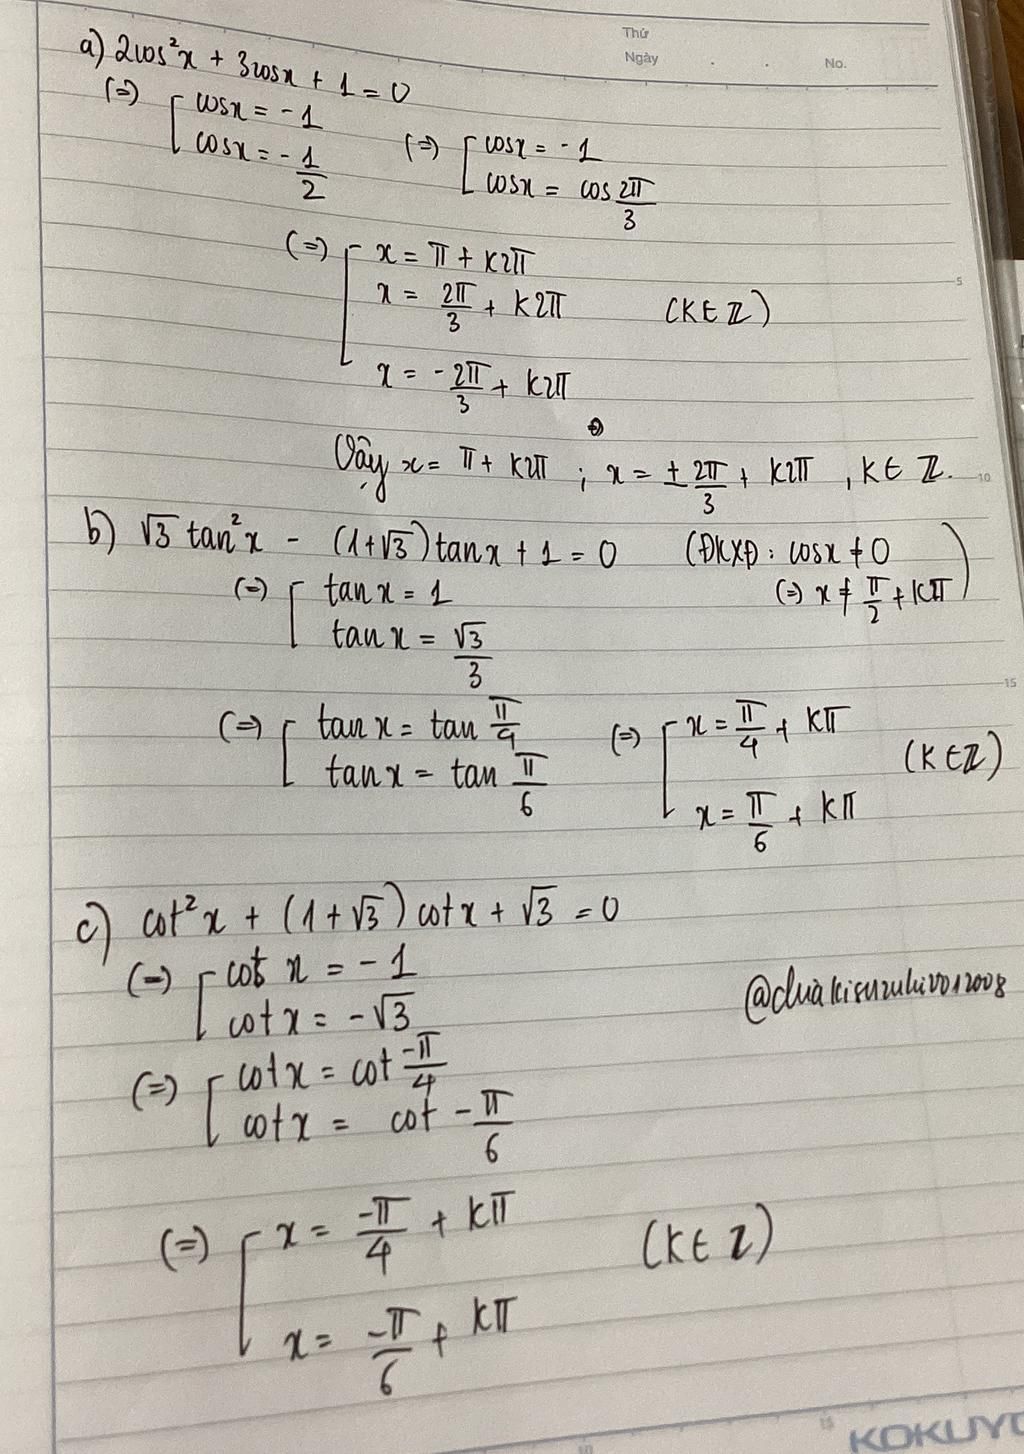 Thứ
Ngày . . No.
a) 2cos²x + 3cosx + 1 = 0
(=) [ cosx = -1
cosx = -1/2
(=) [ cosx = -1
cosx = cos 2π/3
(=) [ x = π + k2π
x = 2π/3 + k2π (k ∈ Z)
x = -2π/3 + k2π
Vậy x = π + k2π ; x = ± 2π/3 + k2π , k ∈ Z.
b) √3 tan²x - (1+√3)tanx + 1 = 0 (ĐKXĐ: cosx ≠ 0
(=) x ≠ π/2 + kπ)
(=) [ tanx = 1
tanx = √3/3
(=) [ tanx = tan π/4
tanx = tan π/6
(=) [ x = π/4 + kπ
x = π/6 + kπ (k ∈ Z)
c) cot²x + (1+√3)cotx + √3 = 0
(=) [ cot x = -1
cotx = -√3
(=) [ cotx = cot -π/4
cotx = cot -π/6
(=) [ x = -π/4 + kπ (k ∈ Z)
x = -π/6 + kπ
5
10
15
10
15